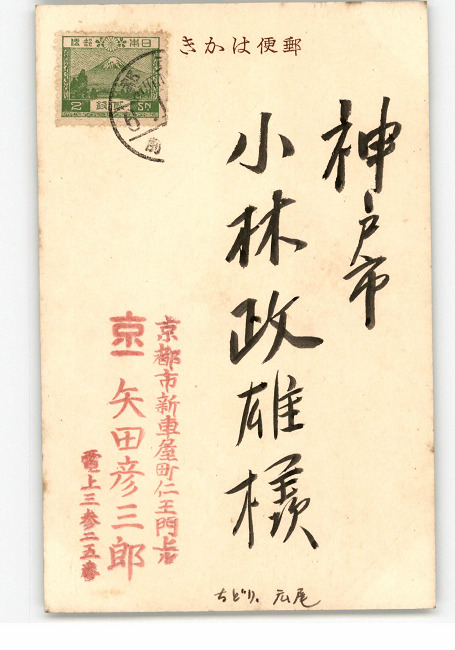 郵便はかき
神戸市
小林政雄様
京都市新車屋町仁王門上ル
京一 矢田彦三郎
電上三参二五番
ちどり、広尾
日本郵便
2 銭 SN